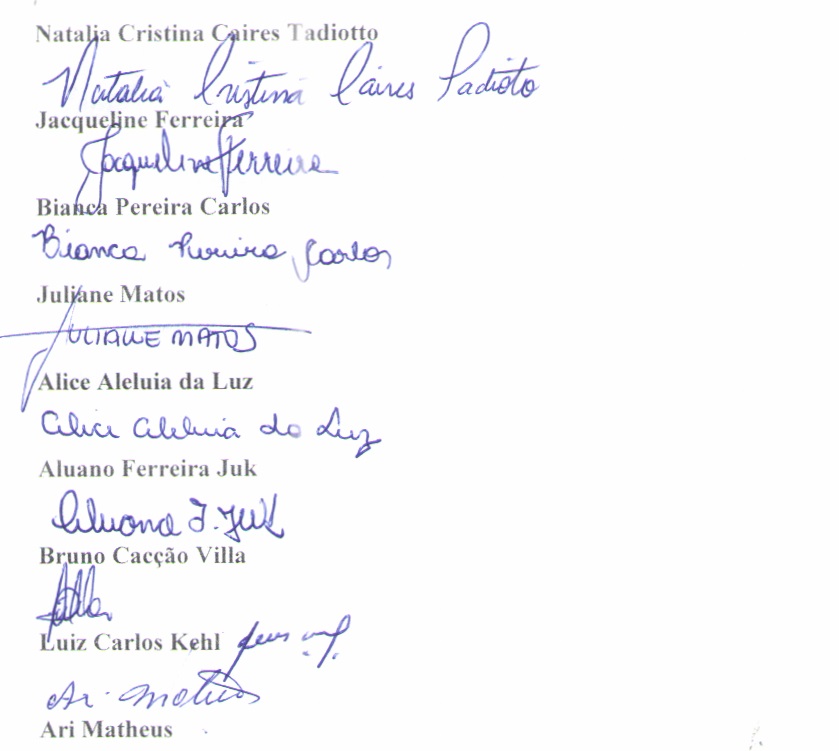 Natalia Cristina Caires Tadiotto
Natalia Cristina Caires Tadioto
Jacqueline Ferreira
Jacqueline Ferreira
Bianca Pereira Carlos
Bianca Pereira Carlos
Juliane Matos
JULIANE MATOS
Alice Aleluia da Luz
Alice Aleluia da Luz
Aluano Ferreira Juk
Aluano F. JUK
Bruno Cacção Villa
Luiz Carlos Kehl
Ari Matheus
Ari Matheus